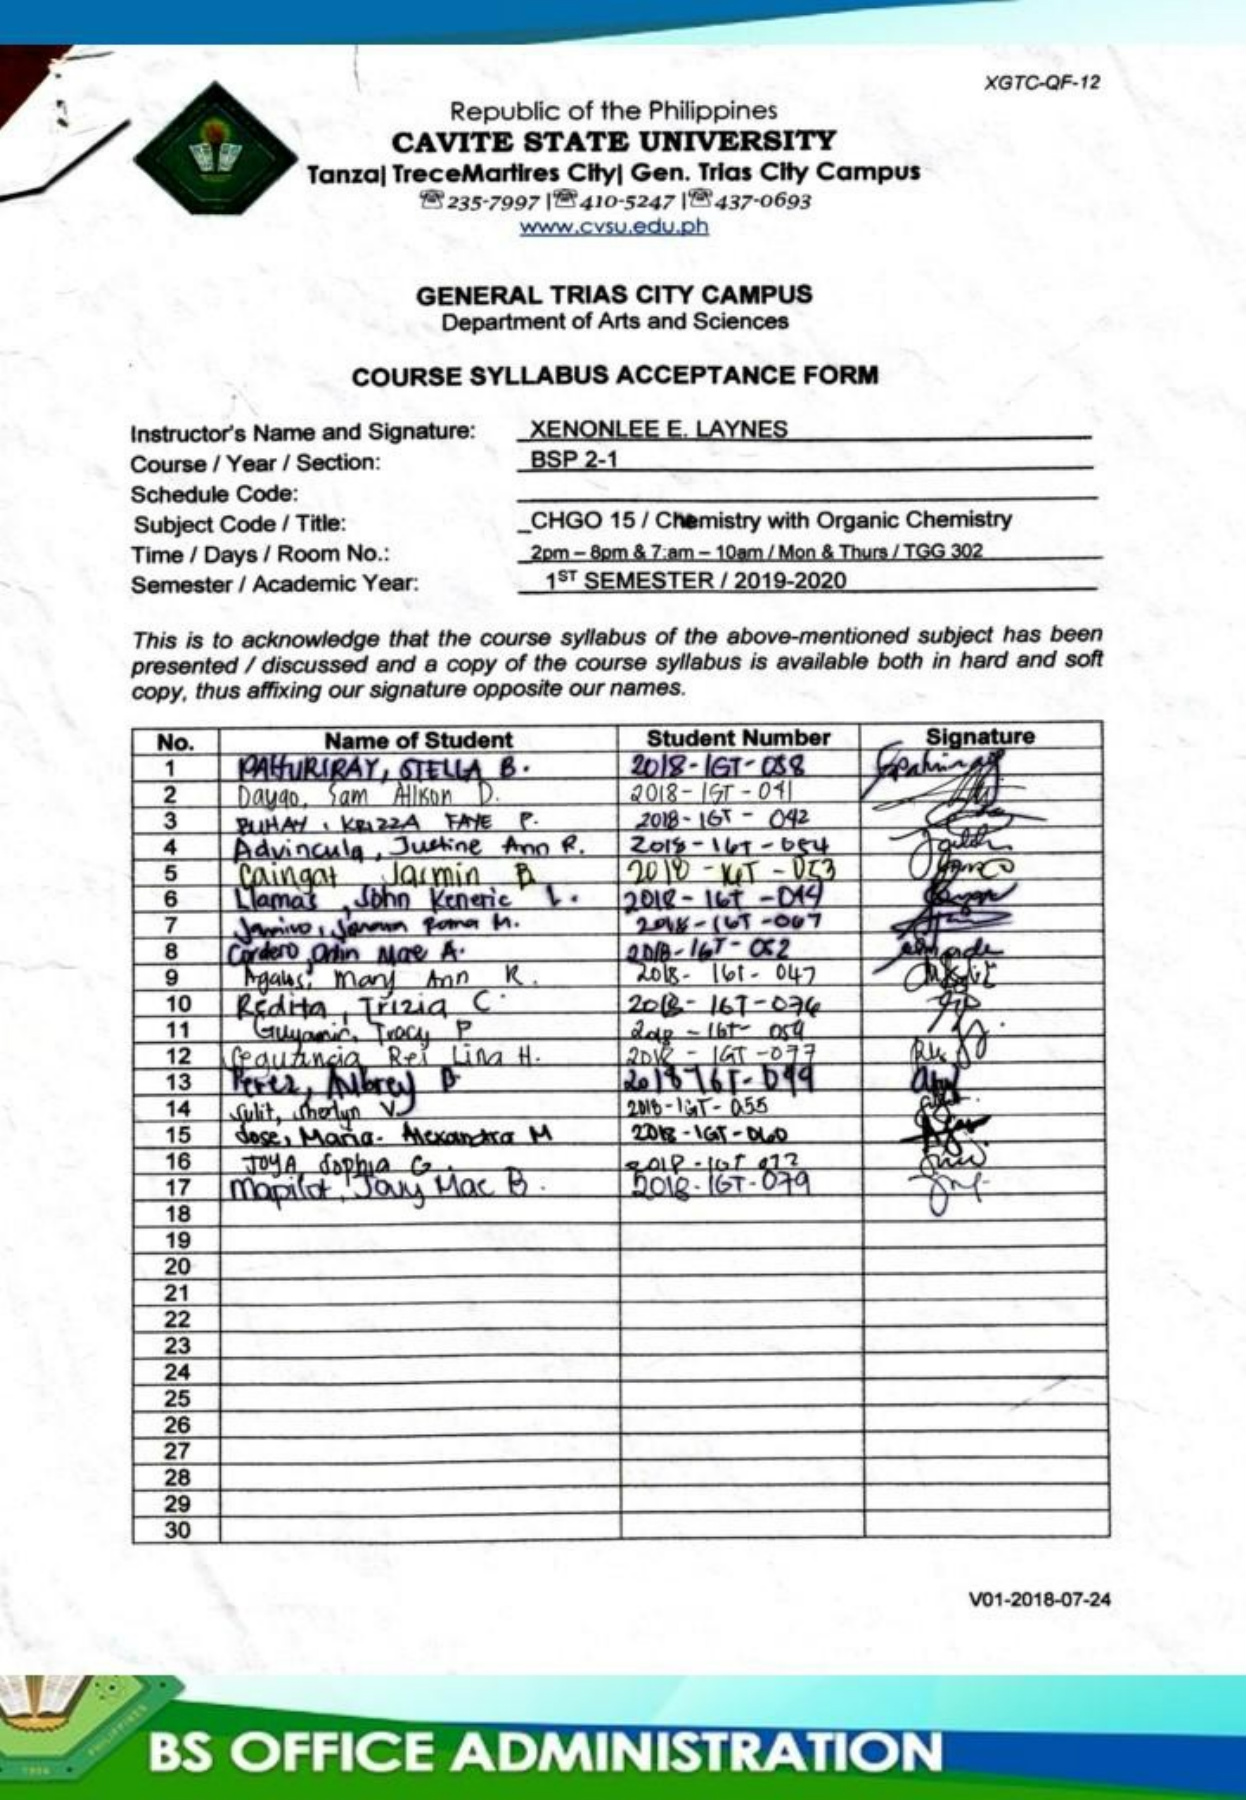 XGTC-QF-12
Republic of the Philippines
CAVITE STATE UNIVERSITY
Tanza| TreceMartires City| Gen. Trias City Campus
☏235-7997 |☏410-5247 |☏437-0693
www.cvsu.edu.ph
GENERAL TRIAS CITY CAMPUS
Department of Arts and Sciences
COURSE SYLLABUS ACCEPTANCE FORM
Instructor's Name and Signature: XENONLEE E. LAYNES
Course / Year / Section: BSP 2-1
Schedule Code:
Subject Code / Title: _CHGO 15 / Chemistry with Organic Chemistry
Time / Days / Room No.: 2pm – 8pm & 7:am – 10am / Mon & Thurs / TGG 302
Semester / Academic Year: 1ST SEMESTER / 2019-2020
This is to acknowledge that the course syllabus of the above-mentioned subject has been
presented / discussed and a copy of the course syllabus is available both in hard and soft
copy, thus affixing our signature opposite our names.
No. Name of Student Student Number Signature
1 STELLA B. 2018-1GT-058
2 Daygo, Sam Allison D. 2018-1GT-041
3 BUHAY, KRIZZA FAYE P. 2018-1GT-042
4 Advincula, Justine Ann R. 2018-1GT-054
5 Caingat Jasmin B 2018-1GT-053
6 Llamas, John Keneric L. 2018-1GT-044
7 M. 2018-1GT-067
8 Cordero, Mae A. 2018-1GT-052
9 Mary Ann R. 2018-1GT-047
10 Redita, Trizia C. 2018-1GT-076
11 Tracy P 2018-1GT-059
12 Rei Lina H. 2018-1GT-077
13 Perez, Aubrey B. 2018-1GT-049
14 Sulit, Sherlyn V. 2018-1GT-055
15 Jose, Maria Alexandra M 2018-1GT-060
16 JOYA, Sophia G. 2018-1GT-072
17 Mapilot, Mac B. 2018-1GT-079
18
19
20
21
22
23
24
25
26
27
28
29
30
V01-2018-07-24
BS OFFICE ADMINISTRATION